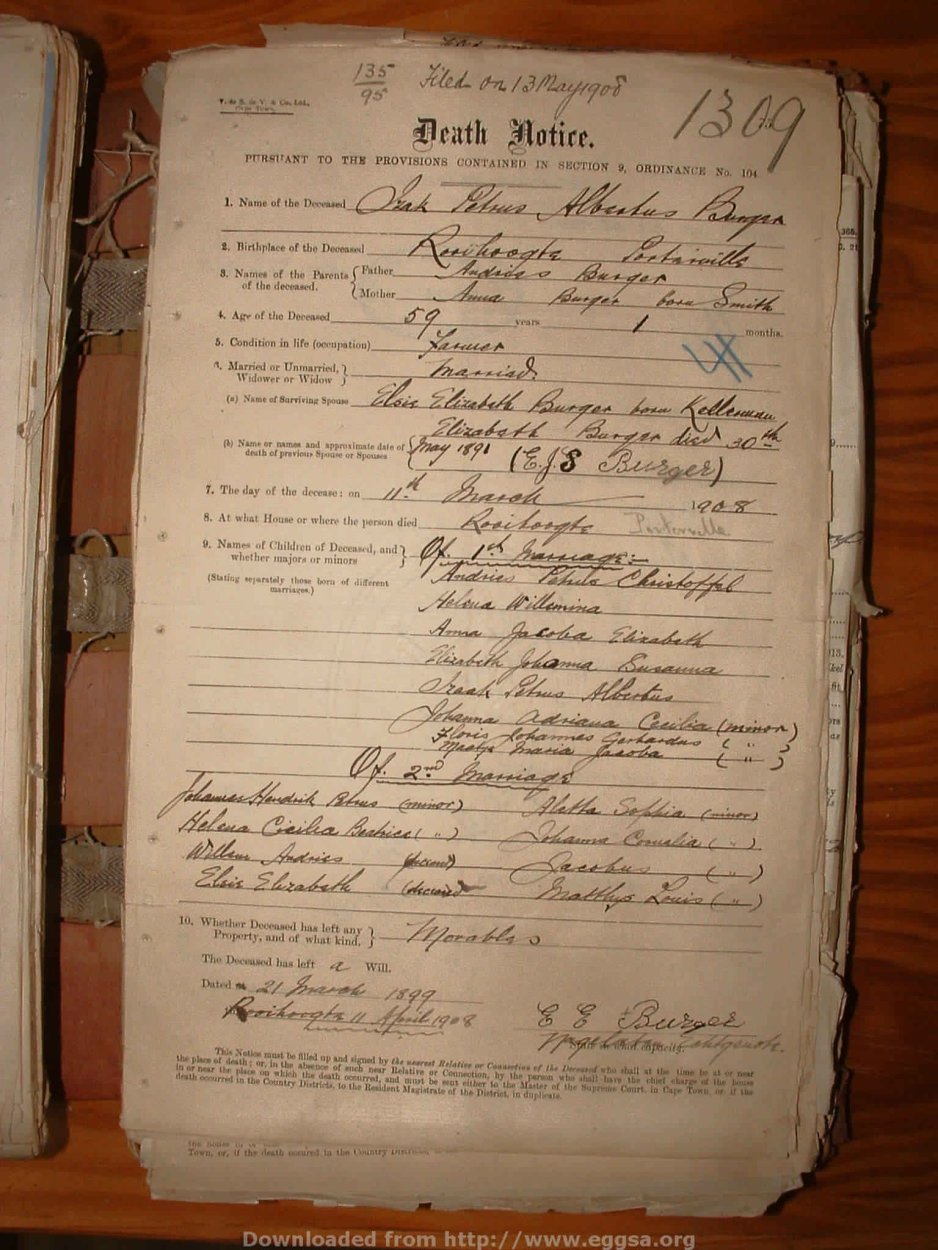 135
95
Filed on 13 May 1908
1309
V. de S. de V. & Co. Ltd.,
Cape Town.
Death Notice.
PURSUANT TO THE PROVISIONS CONTAINED IN SECTION 9, ORDINANCE No. 104
1. Name of the Deceased Izak Petrus Albertus Burger
2. Birthplace of the Deceased Rooihoogte Porterville
3. Names of the Parents of the deceased. { Father Andries Burger
Mother Anna Burger born Smith
4. Age of the Deceased 59 years 1 months.
5. Condition in life (occupation) Farmer
6. Married or Unmarried, Widower or Widow } Married
(a) Name of Surviving Spouse Elsie Elizabeth Burger born Kellerman
Elizabeth Burger died 30th
(b) Name or names and approximate date of death of previous Spouse or Spouses { May 1891 (E.J.S Burger)
7. The day of the decease: on 11th March 1908
8. At what House or where the person died Rooihoogte Porterville
9. Names of Children of Deceased, and whether majors or minors } Of 1st Marriage:-
(Stating separately those born of different marriages.) Andries Petrus Christoffel
Helena Willemina
Anna Jacoba Elizabeth
Elizabeth Johanna Susanna
Izaak Petrus Albertus
Johanna Adriana Cecilia (minor)
Floris Johannes Gerhardus ( " )
Maria Jacoba ( " )
Of 2nd Marriage
Johannes Hendrik Petrus (minor) Aletta Sophia (minor)
Helena Cicilia Beatrice ( " ) Johanna Cornelia ( " )
Willem Andries Jacobus ( " )
Elsie Elizabeth Matthys Louis ( " )
10. Whether Deceased has left any Property, and of what kind, } Movables
The Deceased has left a Will.
Dated 21 March 1899
Rooihoogte 11 April 1908
E E Burger
This Notice must be filled up and signed by the nearest Relative or Connection of the Deceased who shall at the time be at or near
the place of death; or, in the absence of such near Relative or Connection, by the person who shall have the chief charge of the house
in or near the place on which the death occurred, and must be sent either to the Master of the Supreme Court, in Cape Town, or if the
death occurred in the Country Districts, to the Resident Magistrate of the District, in duplicate.
Town, or, if the death occured in the Country
Downloaded from http://www.eggsa.org